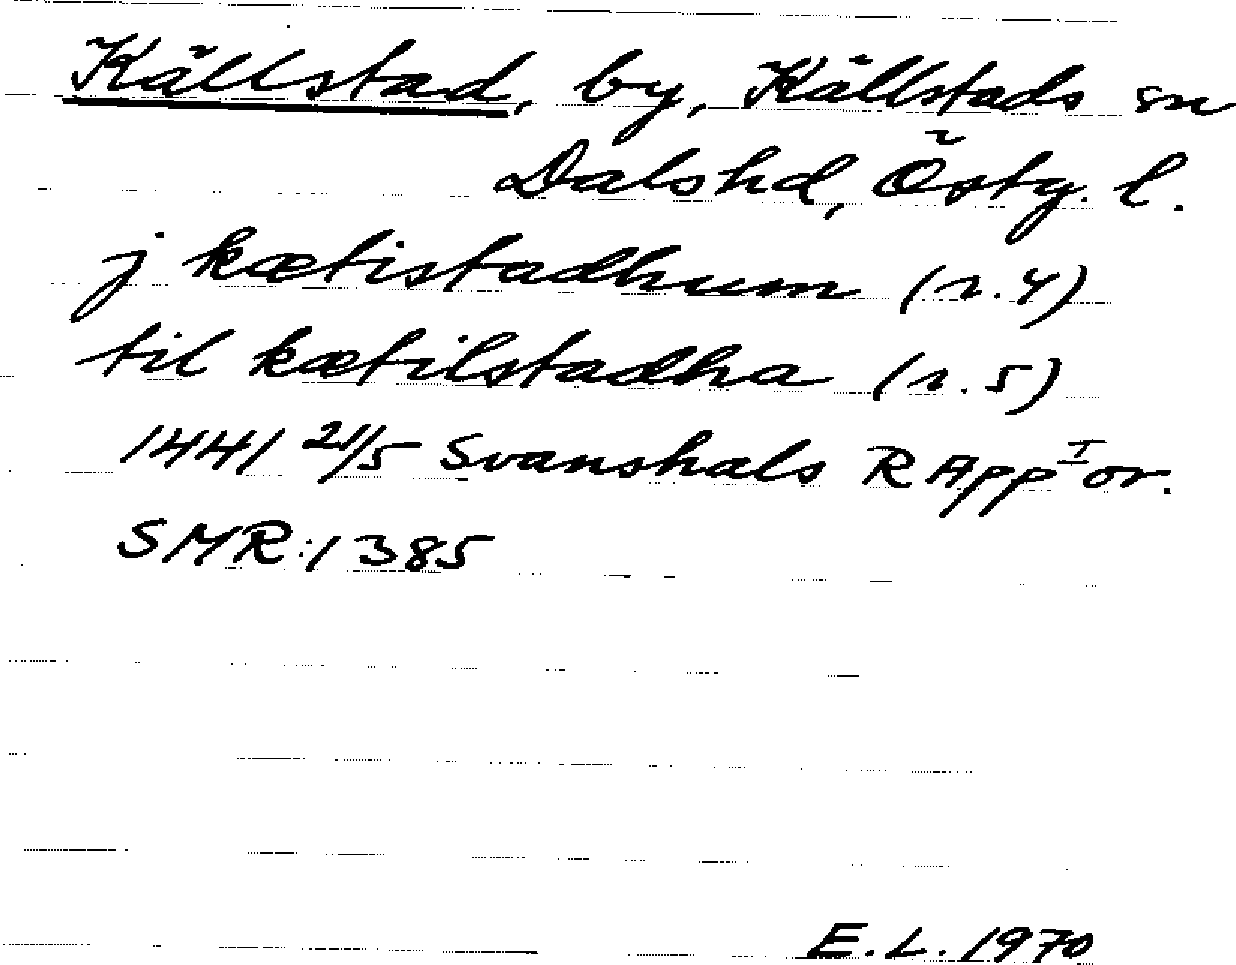 Källstad, by, Källstads sn
Dalshd, Östg. l.
j kætistadhum (r. 4)
til kætilstadha (r. 5)
1441 21/5 Svanshals RAppI or.
SMR: 1385
E. L. 1970